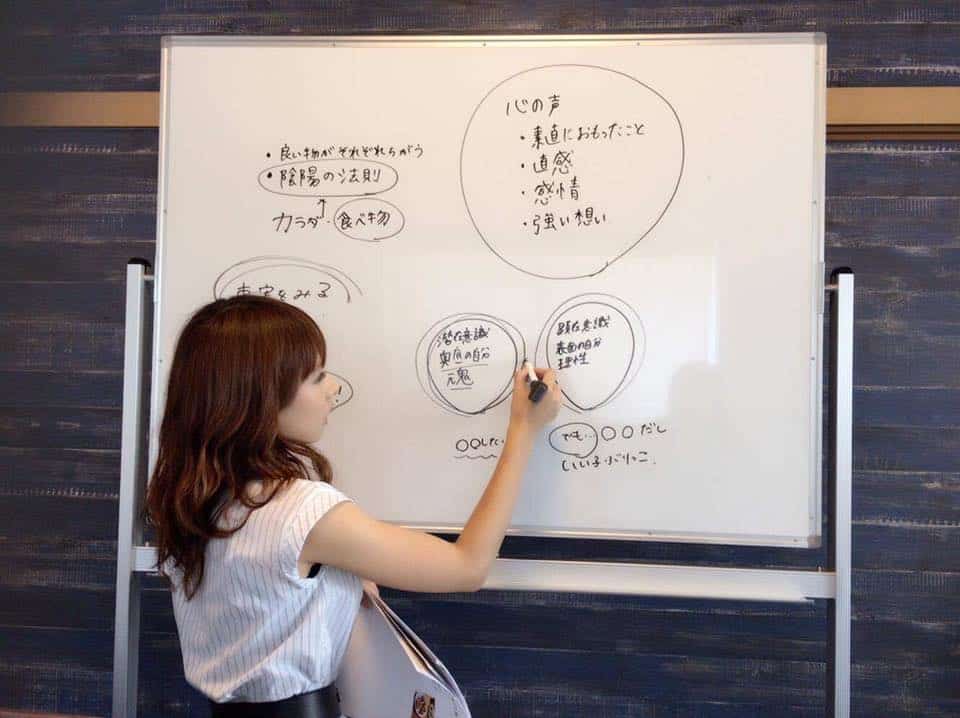 ・良い物がそれぞれちがう
・陰陽の法則
↑
カラダ・食べ物
心の声
・素直におもったこと
・直感
・感情
・強い想い
をみる
潜在意識
奥底の自分
元塊
顕在意識
表面の自分
理性
○○した
でも… ○○だし
いい子ぶりっこ.
!